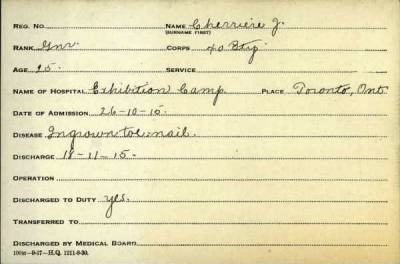 REG. NO. NAME Cherriere J.
(SURNAME FIRST)
RANK Gnr. CORPS 40 Bty.
AGE 25. SERVICE
NAME OF HOSPITAL Exhibition Camp. PLACE Toronto, Ont.
DATE OF ADMISSION 26-10-15
DISEASE Ingrown toe-nail.
DISCHARGE 18-11-15.
OPERATION
DISCHARGED TO DUTY yes.
TRANSFERRED TO
DISCHARGED BY MEDICAL BOARD